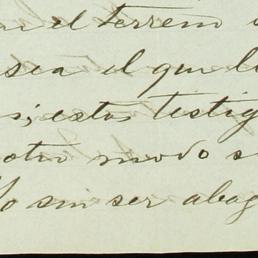 en el terreno
sea el que l
s; estos testig
otro modo s
lo sin ser abog